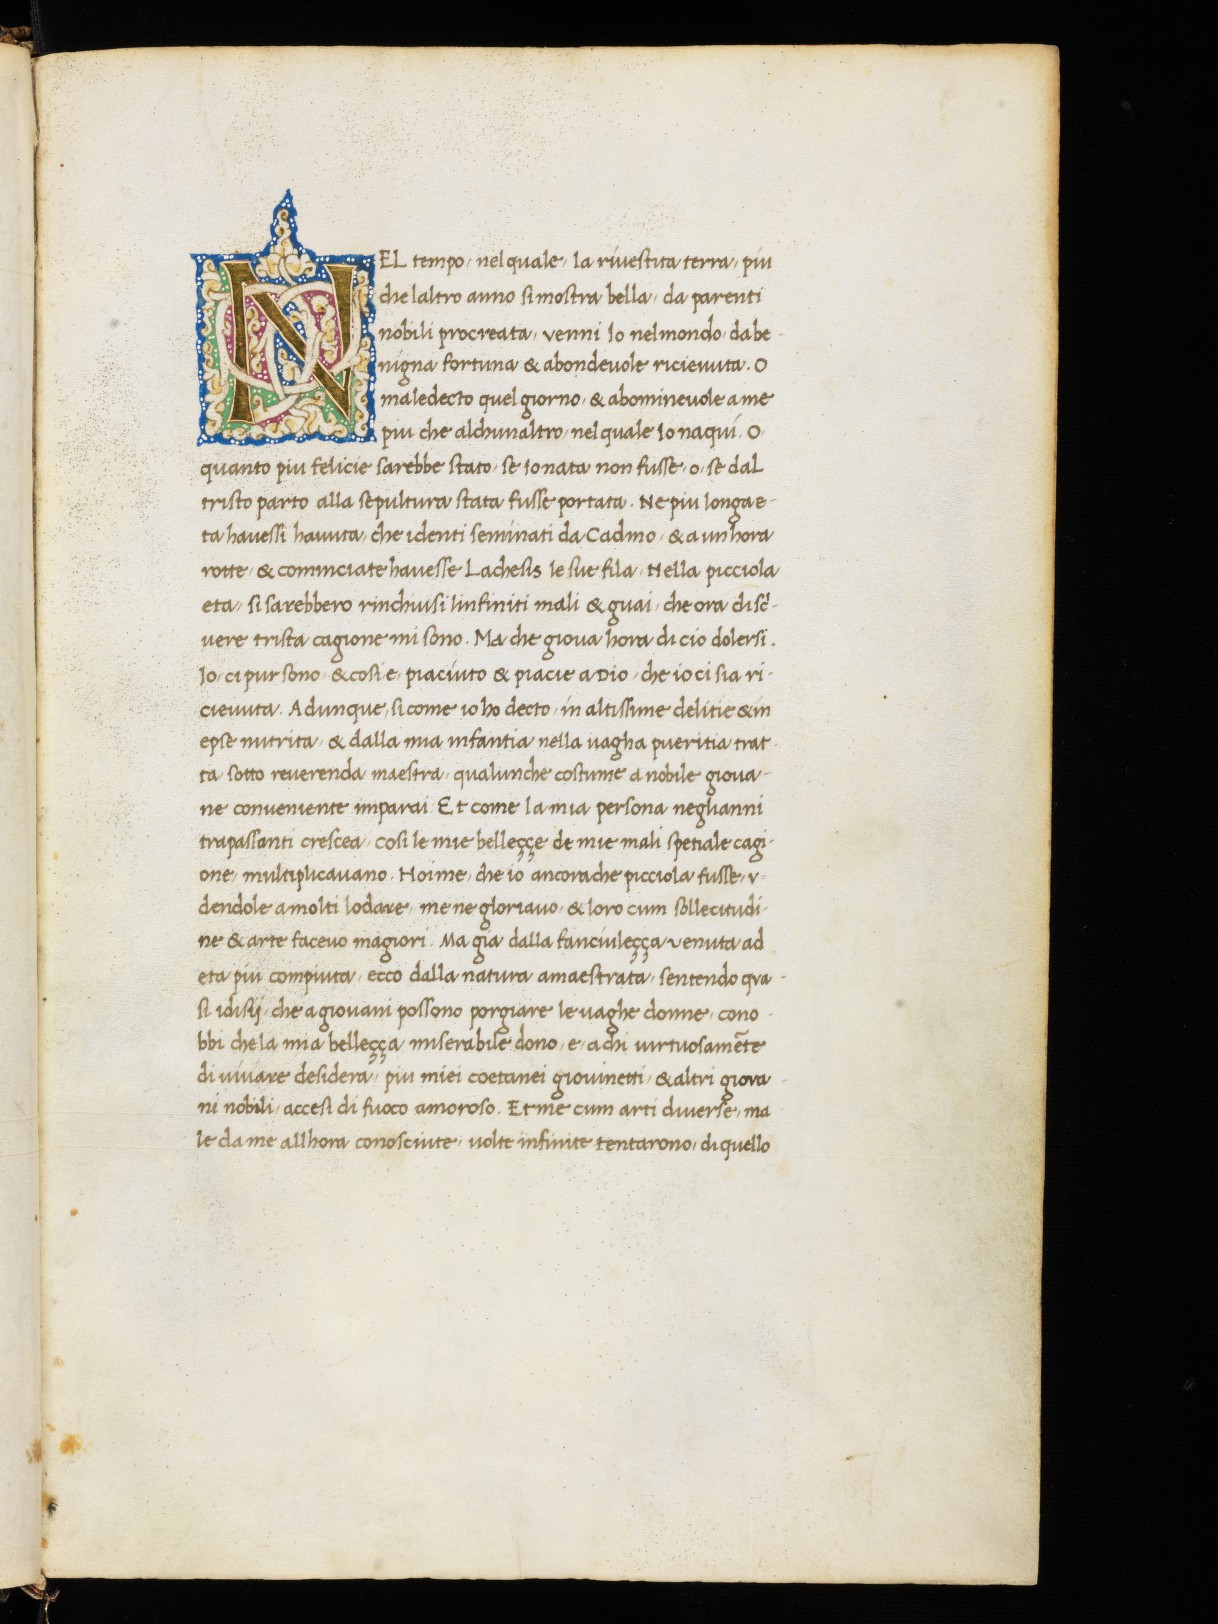 NEL tempo, nel quale, la rivestita terra, piu
che laltro anno si mostra bella, da parenti
nobili procreata, venni Io nel mondo, da be-
nigna fortuna & abondevole ricievuta. O
maledecto quel giorno, & abominevole a me
piu che alchunaltro, nel quale Io naqui. O
quanto piu felicie sarebbe stato, se io nata non fusse, o, se dal
tristo parto alla sepultura stata fusse portata. Ne piu longa e-
ta havessi havuta, che i denti seminati da Cadmo, & a un hora
rotte, & cominciate havesse Lachesis le sue fila, Nella picciola
eta, si sarebbero rinchiusi linfiniti mali & guai, che ora di scri-
vere trista cagione mi sono. Ma che giova hora di cio dolersi.
Io, ci pur sono, & cosi e, piaciuto & piacie a Dio, che io ci sia ri-
cievuta. Adunque, si come io ho decto, in altissime delitie & in
epse nutrita, & dalla mia infantia nella vagha pueritia trat-
ta sotto reverenda maestra, qualunche costume a nobile giova-
ne conveniente imparai. Et come la mia persona neglianni
trapassanti crescea, cosi le mie belleççe de mie mali spetiale cagi-
one, multiplicavano. Hoime, che io ancora che picciola fusse, v-
dendole a molti lodare, me ne gloriavo, & loro cum sollecitudi-
ne & arte facevo magiori. Ma gia dalla fanciuleçça venuta ad
eta piu compiuta, ecco dalla natura amaestrata, sentendo qua-
li idisij, che a giovani possono porgiare le vaghe donne, cono-
bbi che la mia belleçça, miserabile dono, e, a chi virtuosamẽte
di vivare desidera, piu miei coetanei giovinetti, & altri giova-
ni nobili, accesi di fuoco amoroso. Et me cum arti diverse, ma
le da me allhora conosciute, volte infinite tentarono, di quello